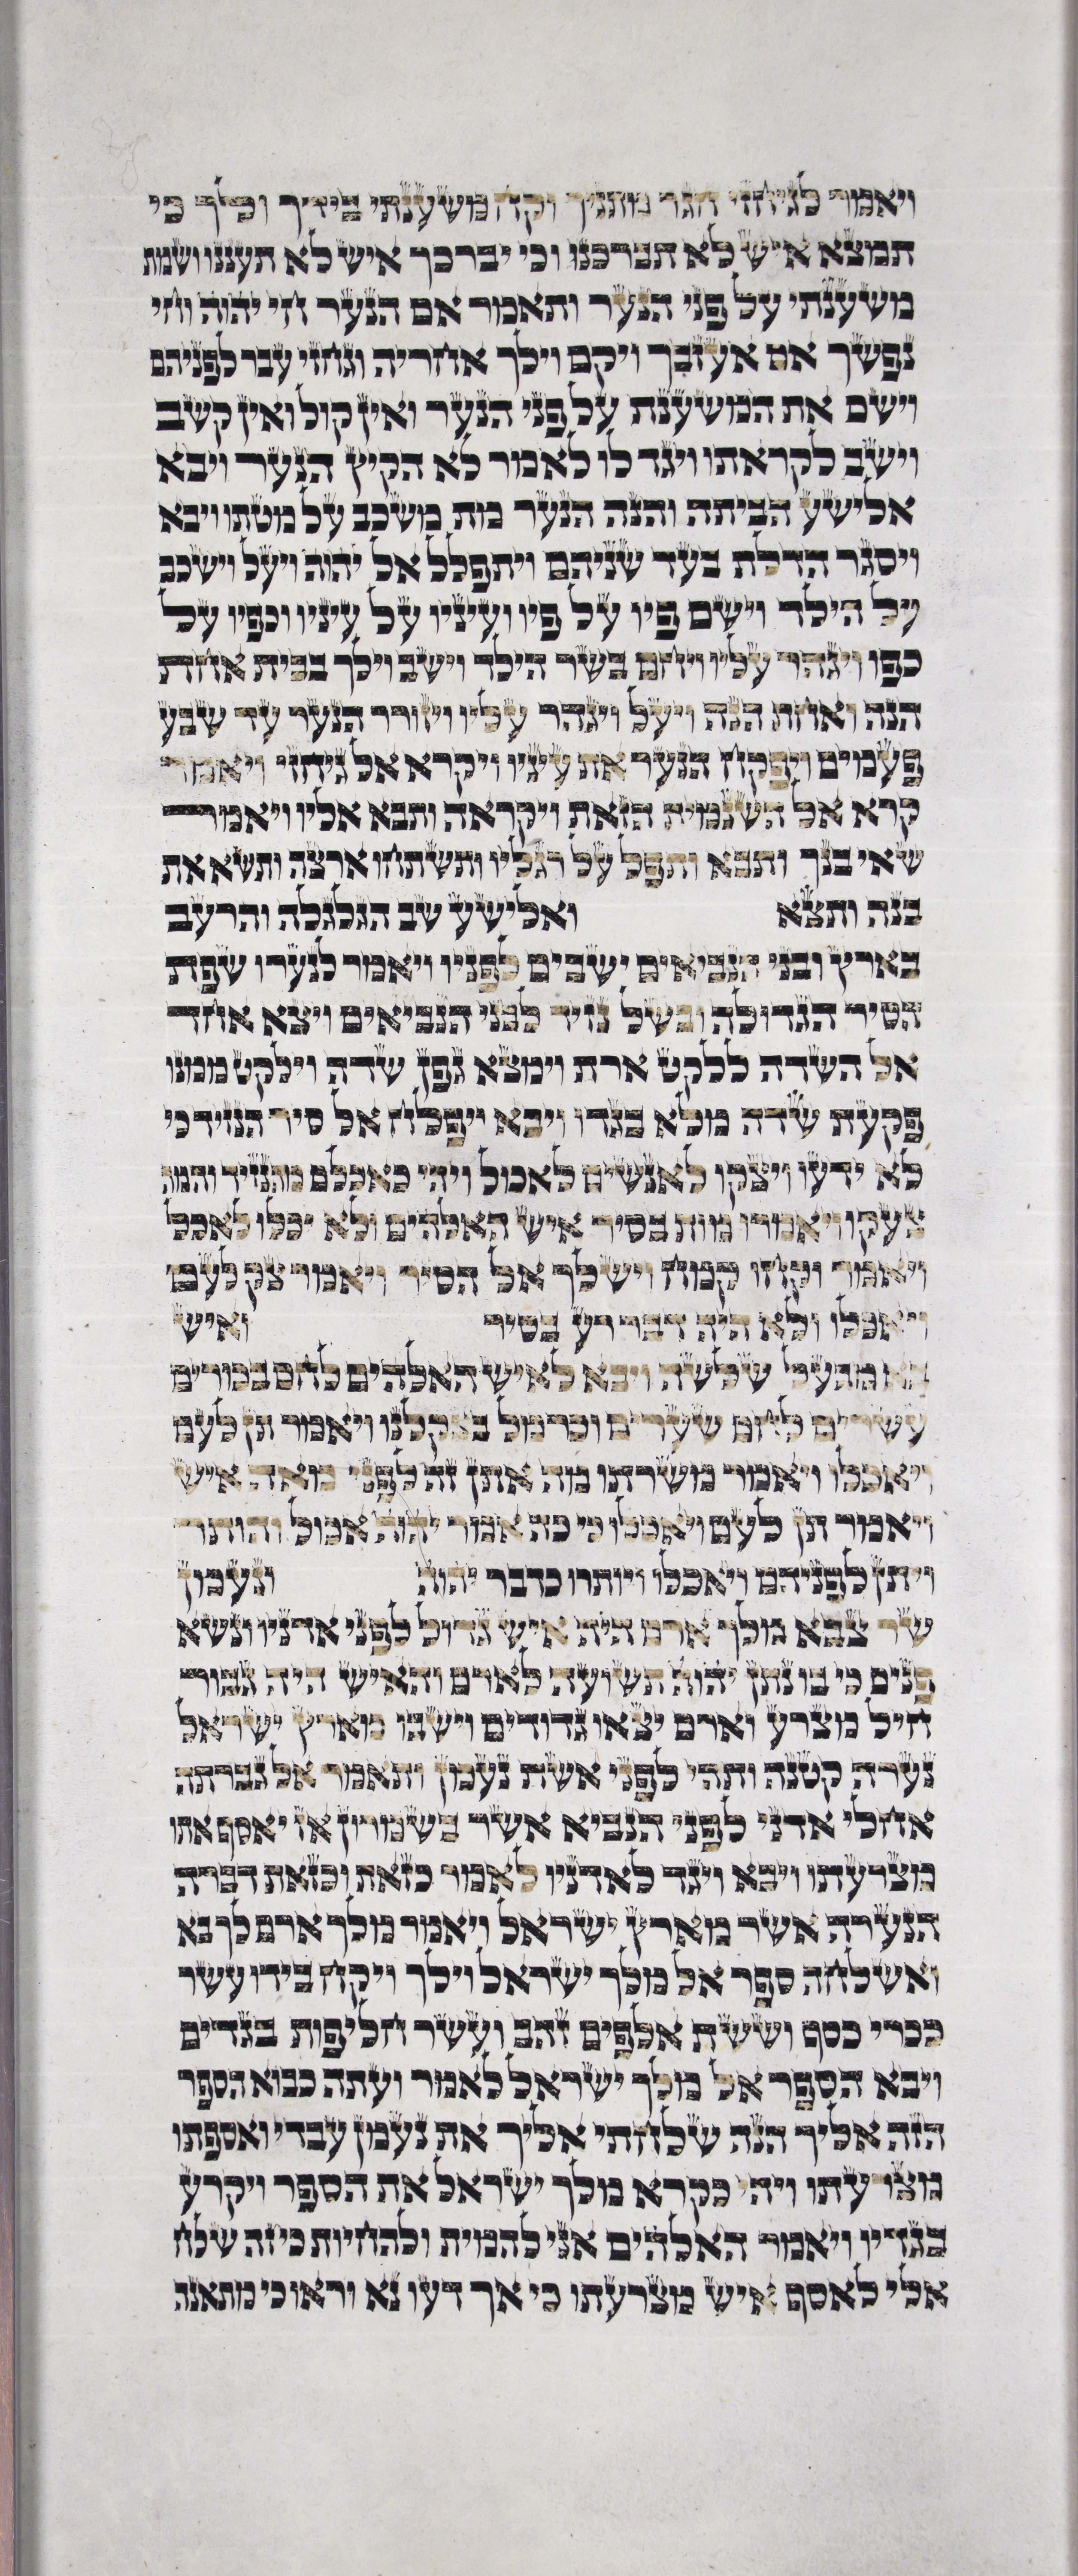 ויאמר לגיחזי חגר מתניך וקח משענתי בידך ולך כי
תמצא איש לא תברכנו וכי יברכך איש לא תעננו ושמת
משענתי על פני הנער ותאמר אם הנער חי יהוה וחי
נפשך אם אעזבך ויקם וילך אחריה וגחזי עבר לפניהם
וישם את המשענת על פני הנער ואין קול ואין קשב
וישב לקראתו ויגד לו לאמר לא הקיץ הנער ויבא
אלישע הביתה והנה הנער מת משכב על מטתו ויבא
ויסגר הדלת בעד שניהם ויתפלל אל יהוה ויעל וישכב
על הילד וישם פיו על פיו ועיניו על עיניו וכפיו על
כפו ויגהר עליו ויחם בשר הילד וישב וילך בבית אחת
הנה ואחת הנה ויעל ויגהר עליו ויזורר הנער עד שבע
פעמים ויפקח הנער את עיניו ויקרא אל גיחזי ויאמר
קרא אל השנמית הזאת ויקראה ותבא אליו ויאמר
שאי בנך ותבא ותפל על רגליו ותשתחו ארצה ותשא את
בנה ותצא ואלישע שב הגלגלה והרעב
בארץ ובני הנביאים ישבים לפניו ויאמר לנערו שפת
הסיר הגדולה ובשל נזיד לבני הנביאים ויצא אחד
אל השדה ללקט ארת וימצא גפן שדה וילקט ממנו
פקעת שדה מלא בגדו ויבא ויפלח אל סיר הנזיד כי
לא ידעו ויצקו לאנשים לאכול ויהי כאכלם מהנזיד והמה
צעקו ויאמרו מות בסיר איש האלהים ולא יכלו לאכל
ויאמר וקחו קמח וישלך אל הסיר ויאמר צק לעם
ויאכלו ולא היה דבר רע בסיר ואיש
בא מבעל שלשה ויבא לאיש האלהים לחם בכורים
עשרים לחם שערים וכרמל בצקלנו ויאמר תן לעם
ויאכלו ויאמר משרתו מה אתן זה לפני מאה איש
ויאמר תן לעם ויאכלו כי כה אמר יהוה אכול והותר
ויתן לפניהם ויאכלו ויותרו כדבר יהוה ונעמן
שר צבא מלך ארם היה איש גדול לפני אדניו ונשא
פנים כי בו נתן יהוה תשועה לארם והאיש היה גבור
חיל מצרע וארם יצאו גדודים וישבו מארץ ישראל
נערה קטנה ותהי לפני אשת נעמן ותאמר אל גברתה
אחלי אדני לפני הנביא אשר בשמרון אז יאסף אתו
מצרעתו ויבא ויגד לאדניו לאמר כזאת וכזאת דברה
הנערה אשר מארץ ישראל ויאמר מלך ארם לך בא
ואשלחה ספר אל מלך ישראל וילך ויקח בידו עשר
ככרי כסף וששת אלפים זהב ועשר חליפות בגדים
ויבא הספר אל מלך ישראל לאמר ועתה כבוא הספר
הזה אליך הנה שלחתי אליך את נעמן עבדי ואספתו
מצרעתו ויהי כקרא מלך ישראל את הספר ויקרע
בגדיו ויאמר האלהים אני להמית ולהחיות כי זה שלח
אלי לאסף איש מצרעתו כי אך דעו נא וראו כי מתאנה